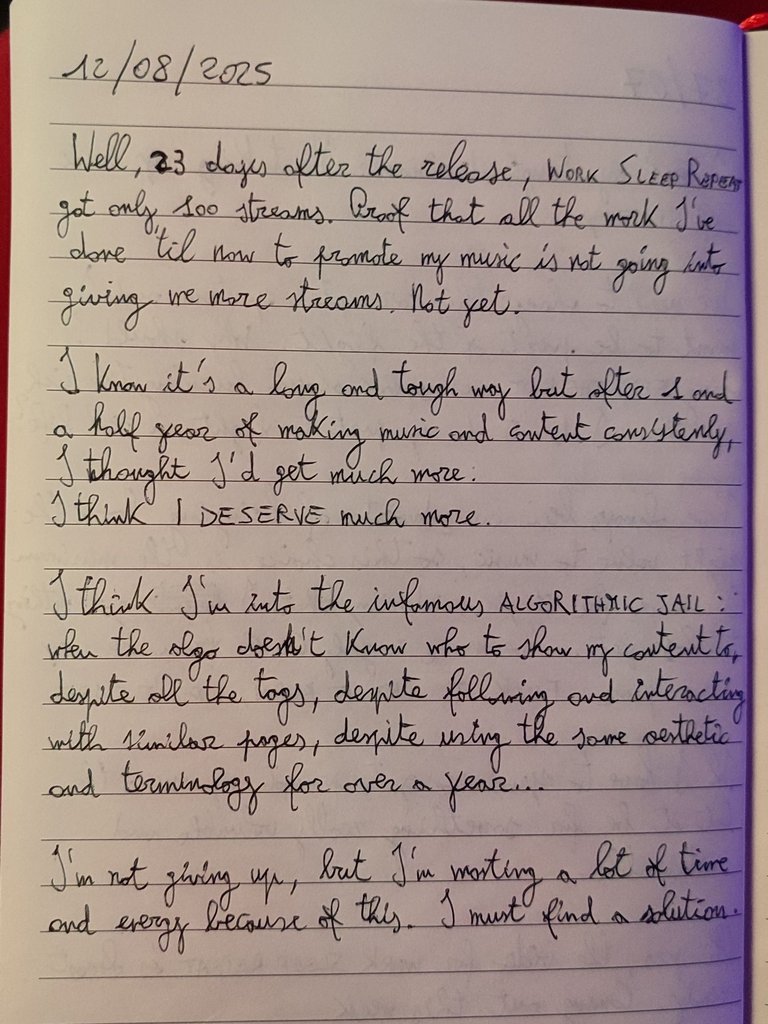 12/08/2025
Well, 23 days after the release, WORK SLEEP REPEAT
got only 100 streams. Proof that all the work I've
done 'til now to promote my music is not going into
giving me more streams. Not yet.
I know it's a long and tough way but after 1 and
a half year of making music and content consistenly,
I thought I'd get much more.
I think I DESERVE much more.
I think I'm into the infamous ALGORITHMIC JAIL:
when the algo doesn't know who to show my content to,
despite all the tags, despite following and interacting
with similar pages, despite using the same aesthetic
and terminology for over a year...
I'm not giving up, but I'm wasting a lot of time
and energy because of this. I must find a solution.